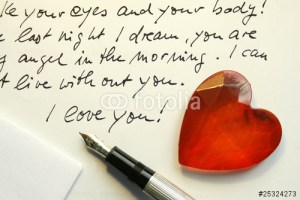 ke your eyes and your body!
e last night I dream, you are
y angel in the morning. I can
t live with out you.
I love you!
fotolia
#25324273